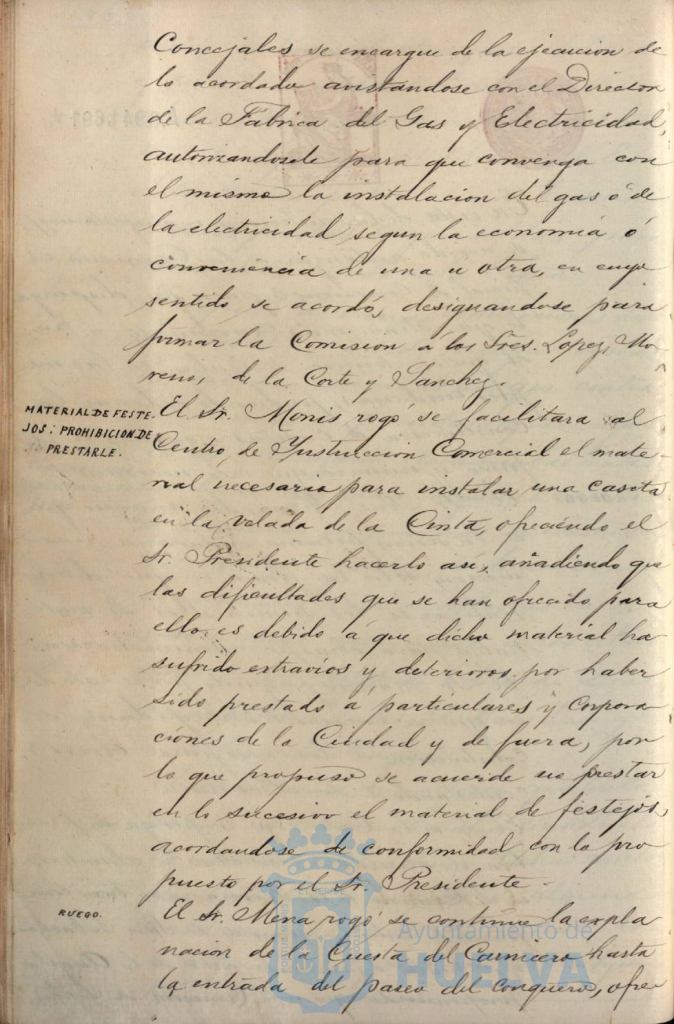 Concejales se encargue de la ejecucion de
lo acordado avistandose con el Director
de la Fabrica del Gas y Electricidad,
autorizandosele para que convenga con
el mismo la instalacion del gas ó de
la electricidad segun la economia ó
conveniencia de una u otra, en cuyo
sentido se acordó, designandose para
formar la Comision á los Sres. Lopez, Mo-
reno, de la Corte y Sanchez.
MATERIAL DE FESTE-
JOS: PROHIBICION DE
PRESTARLE.
El Sr. Monis rogó se facilitara al
Centro de Instruccion Comercial el mate-
rial necesario para instalar una caseta
en la velada de la Cinta, ofreciendo el
Sr. Presidente hacerlo asi, añadiendo que
las dificultades que se han ofrecido para
ello es debido á que dicho material ha
sufrido extravios y deterioros por haber
sido prestado á particulares y corpora-
ciones de la Ciudad y de fuera, por
lo que propuso se acuerde no prestar
en lo sucesivo el material de festejos,
acordandose de conformidad con lo pro-
puesto por el Sr. Presidente.
RUEGO.
El Sr. Mena rogó se continue la expla-
nacion de la Cuesta del Carnicero hasta
la entrada del paseo del conquero, ofre-
Ayuntamiento de
HUELVA